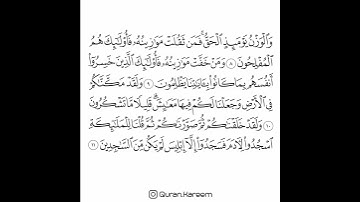 وَٱلۡوَزۡنُ يَوۡمَئِذٍ ٱلۡحَقُّۚ فَمَن ثَقُلَتۡ مَوَٰزِينُهُۥ فَأُوْلَٰٓئِكَ هُمُ
ٱلۡمُفۡلِحُونَ ٨ وَمَنۡ خَفَّتۡ مَوَٰزِينُهُۥ فَأُوْلَٰٓئِكَ ٱلَّذِينَ خَسِرُوٓاْ
أَنفُسَهُم بِمَا كَانُواْ بِـَٔايَٰتِنَا يَظۡلِمُونَ ٩ وَلَقَدۡ مَكَّنَّٰكُمۡ
فِي ٱلۡأَرۡضِ وَجَعَلۡنَا لَكُمۡ فِيهَا مَعَٰيِشَۗ قَلِيلٗا مَّا تَشۡكُرُونَ
١٠ وَلَقَدۡ خَلَقۡنَٰكُمۡ ثُمَّ صَوَّرۡنَٰكُمۡ ثُمَّ قُلۡنَا لِلۡمَلَٰٓئِكَةِ
ٱسۡجُدُواْ لِأٓدَمَ فَسَجَدُوٓاْ إِلَّآ إِبۡلِيسَ لَمۡ يَكُن مِّنَ ٱلسَّٰجِدِينَ ١١
Quran.Kareem